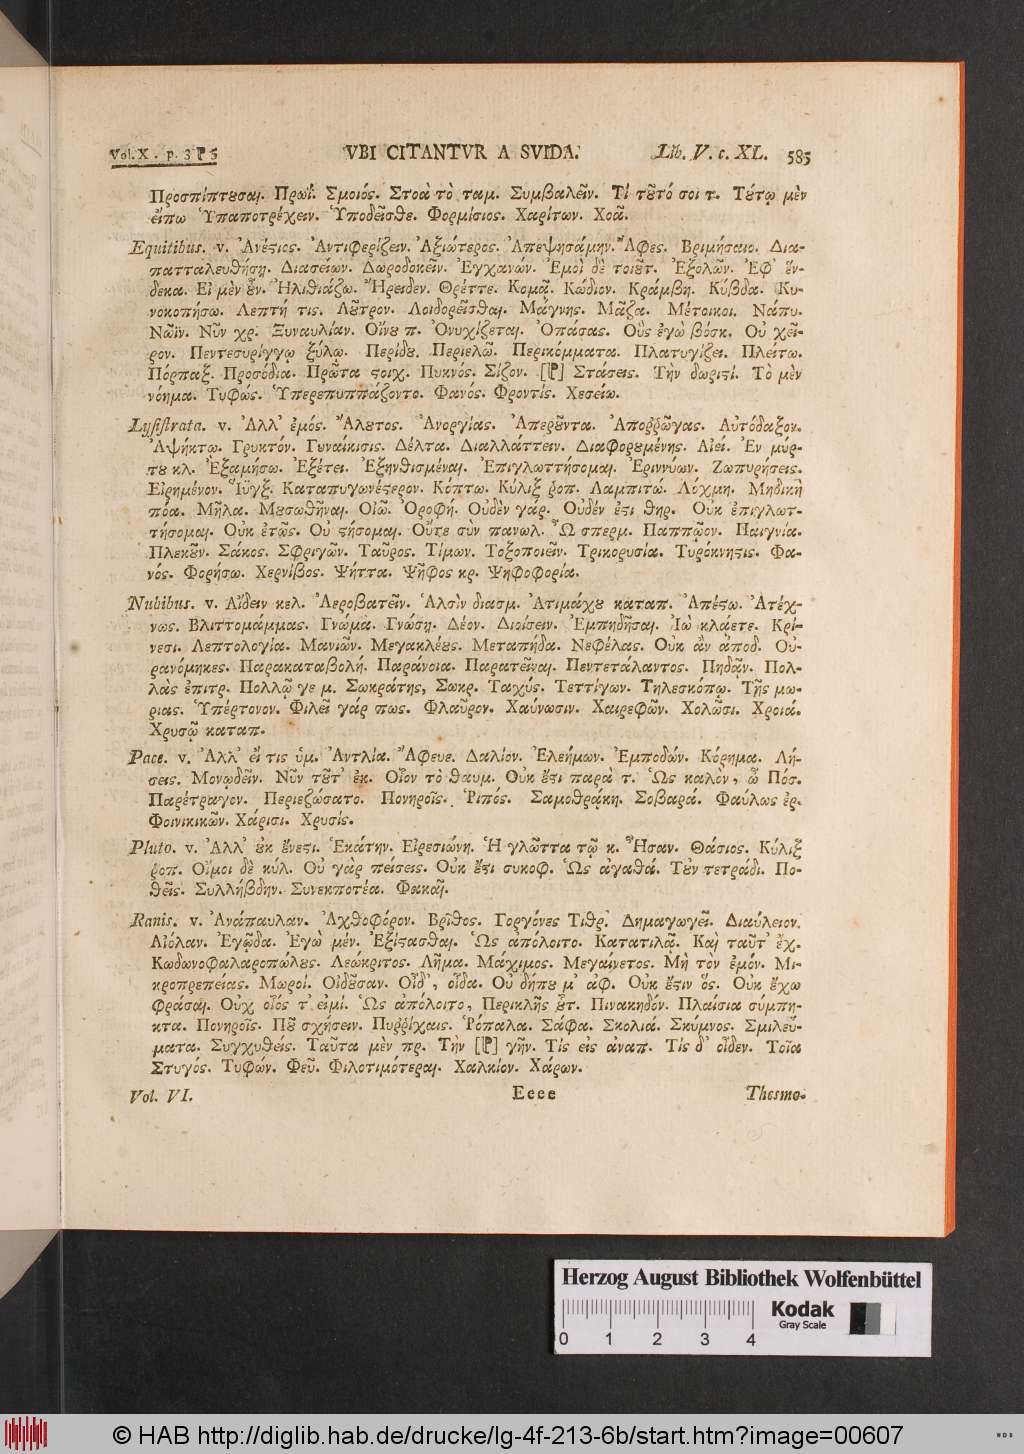 Vol. X. p. 3 5 VBI CITANTVR A SVIDA. Lib. V. c. XL. 585
Προσπίπτουσαι. Πρωΐ. Σμοιός. Στοὰ τὸ ταμ. Συμβαλεῖν. Τί τοῦτό σοι τ. Τούτῳ μὲν
εἴπω Ὑπαποτρέχειν. Ὑποδεῖσθε. Φορμίσιος. Χαρίτων. Χοᾶ.
Equitibus. v. Ἀνέστιος. Ἀντιφερίζειν. Ἀξιώτερος. Ἀπεψησάμην. Ἄφες. Βριμήσαιο. Δια-
πατταλευθήσῃ. Διασείων. Δωροδοκεῖν. Ἐγχανών. Ἐμοὶ δὲ τοιοῦτ. Ἐξολῶν. Ἐφ' ἕν-
δεκα. Εἰ μὲν οὖν. Ἠλιθιάζω. Ἤρειδεν. Θρέττε. Κομᾶ. Κώδιον. Κράμβη. Κύβδα. Κυ-
νοκοπήσω. Λεπτή τις. Λοῦτρον. Λοιδορεῖσθαι. Μάγνης. Μᾶζα. Μέτοικοι. Νάπυ.
Νῶϊν. Νῦν χρ. Ξυναυλίαν. Οἴνου π. Ὀνυχίζεται. Ὀπάσας. Οὓς ἐγὼ βόσκ. Οὐ χεῖ-
ρον. Πεντεσυρίγγῳ ξύλῳ. Περίδου. Περιελῶ. Περικόμματα. Πλατυγίζει. Πλείτω.
Πόρπαξ. Προσόδια. Πρῶτα στοιχ. Πυκνός. Σίζον. [] Στάσεις. Τὴν δωριστί. Τὸ μὲν
νόημα. Τυφώς. Ὑπερεπυππάζοντο. Φανός. Φροντίς. Χεσείω.
Lysistrata. v. Ἀλλ' ἐμός. Ἄλουτος. Ἀνοργίας. Ἀπεροῦντα. Ἀποῤῥῶγας. Αὐτόδαξον.
Ἀψήκτῳ. Γρυκτόν. Γυναίκισις. Δέλτα. Διαλλάττειν. Διαφορουμένης. Αἰεί. Ἐν μύρ-
του κλ. Ἐξαμήσω. Ἐξέτει. Ἐξηνθισμέναι. Ἐπιγλωττήσομαι. Ἐριννύων. Ζωπυρήσεις.
Εἰρημένον. Ἴϋγξ. Καταπυγωνέστερον. Κόπτω. Κύλιξ ῥοπ. Λαμπιτώ. Λόχμη. Μηδικὴ
πόα. Μῆλα. Μουσωθῆναι. Οἰῶ. Ὀροφή. Οὐδὲν γάρ. Οὐδέν ἐστι θηρ. Οὐκ ἐπιγλωτ-
τήσομαι. Οὐκ ἐτῶς. Οὐ στήσομαι. Οὔτε σὺν πανωλ. Ὦ σπερμ. Παππῷον. Παιγνία.
Πλεκοῦν. Σάκος. Σφριγῶν. Ταῦρος. Τίμων. Τοξοποιεῖν. Τρικορυσία. Τυρόκνηστις. Φα-
νός. Φορήσω. Χερνίβος. Ψήττα. Ψῆφος κρ. Ψηφοφορία.
Nubibus. v. Αἴδειν κελ. Ἀεροβατεῖν. Ἁλσὶν διασμ. Ἀτιμάχου καταπ. Ἀπέστω. Ἀτέχ-
νως. Βλιττομάμμας. Γνώμα. Γνώσῃ. Δέον. Διοίσειν. Ἐμπηδῆσαι. Ἰὼ κλάετε. Κρί-
νεσι. Λεπτολογία. Μανιῶν. Μεγακλέους. Μεταπήδα. Νεφέλας. Οὐκ ἂν ἀποδ. Οὐ-
ρανόμηκες. Παρακαταβολή. Παράνοια. Παρατεῖναι. Πεντετάλαντος. Πηδᾷν. Πολ-
λὰς ἐπιτρ. Πολλῷ γε μ. Σωκράτης, Σωκρ. Ταχύς. Τεττίγων. Τηλεσκόπῳ. Τῆς μω-
ριας. Ὑπέρτονον. Φιλεῖ γάρ πως. Φλαῦρον. Χαύνωσιν. Χαιρεφῶν. Χολῶσι. Χροιά.
Χρυσῷ καταπ.
Pace. v. Ἀλλ' εἴ τις ὑμ. Ἀντλία. Ἄφευε. Δαλίον. Ἐλεήμων. Ἐμποδών. Κόρημα. Λή-
σεις. Μονῳδεῖν. Νῦν τοῦτ' ἐκ. Οἷον τὸ θαυμ. Οὐκ ἔστι παρὰ τ. Ὡς καλὸν, ὦ Πόσ.
Παρέτραγον. Περιεζώσατο. Πονηροῖς. Ῥιπός. Σαμοθρᾴκη. Σοβαρά. Φαύλως ἐρ.
Φοινικικῶν. Χάρισι. Χρυσίς.
Pluto. v. Ἀλλ' οὐκ ἔνεστι. Ἑκάτην. Εἰρεσιώνη. Ἡ γλῶττα τῷ κ. Ἦσαν. Θάσιος. Κύλιξ
ῥοπ. Οἴμοι δὲ κύλ. Οὐ γὰρ πείσεις. Οὐκ ἔστι συκοφ. Ὡς ἀγαθά. Τὸν τετράδι. Πο-
θεῖς. Συλλήβδην. Συνεκποτέα. Φακαῖ.
Ranis. v. Ἀνάπαυλαν. Ἀχθοφόρον. Βρῖθος. Γοργόνες Τιθρ. Δημαγωγεῖ. Διαύλειον.
Αἰόλαν. Ἐγᾦδα. Ἐγὼ μέν. Ἐξίστασθαι. Ὡς ἀπόλοιτο. Κατατιλᾶ. Καὶ ταῦτ' ἔχ.
Κωδωνοφαλαροπώλους. Λεώκριτος. Λῆμα. Μάχιμος. Μεγαίνετος. Μὴ τὸν ἐμόν. Μι-
κροπρεπείας. Μωροί. Οἰδοῦσαν. Οἶδ', οἶδα. Οὐ δήπου μ' ἀφ. Οὐκ ἔστιν ὅς. Οὐκ ἔχω
φράσαι. Οὐχ οἷός τ' εἰμί. Ὡς ἀπόλοιτο, Περικλῆς οὗτ. Πινακηδόν. Πλαίσια σύμπη-
κτα. Πονηροῖς. Ποῦ σχήσειν. Πυῤῥίχαις. Ῥόπαλα. Σάφα. Σκολιά. Σκύμνος. Σμιλεύ-
ματα. Συγχυθείς. Ταῦτα μὲν πρ. Τὴν [] γῆν. Τίς εἰς ἀναπ. Τίς δ' οἶδεν. Τοῖα
Στυγός. Τυφών. Φεῦ. Φιλοτιμότεραι. Χαλκίον. Χάρων.
Vol. VI. Eeee Thesmo-
Herzog August Bibliothek Wolfenbüttel
Kodak
Gray Scale
0 1 2 3 4
© HAB http://diglib.hab.de/drucke/lg-4f-213-6b/start.htm?image=00607